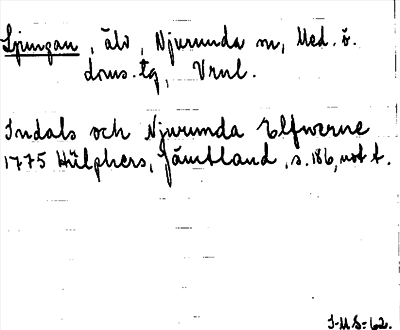 Ljungan, älv, Njurunda sn, Med. ö.
doms. tg, Vrnl.
Indals och Njurunda Elfwerne
1775 Hülphers, Jämtland, s. 186, not t.
I-M S-62.